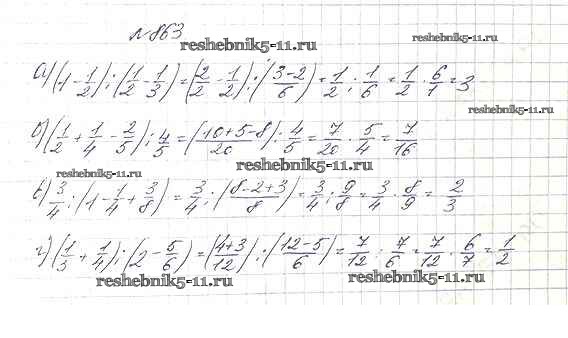 № 863
reshebnik5-11.ru
reshebnik5-11.ru
а) (1 - 1/2) : (1/2 - 1/3) = (2/2 - 1/2) : (3-2/6) = 1/2 : 1/6 = 1/2 · 6/1 = 3
б) (1/2 + 1/4 - 2/5) : 4/5 = (10+5-8/20) : 4/5 = 7/20 · 5/4 = 7/16
reshebnik5-11.ru
reshebnik5-11.ru
в) 3/4 : (1 - 1/4 + 3/8) = 3/4 : (8-2+3/8) = 3/4 : 9/8 = 3/4 · 8/9 = 2/3
г) (1/3 + 1/4) : (2 - 5/6) = (4+3/12) : (12-5/6) = 7/12 : 7/6 = 7/12 · 6/7 = 1/2
reshebnik5-11.ru
reshebnik5-11.ru